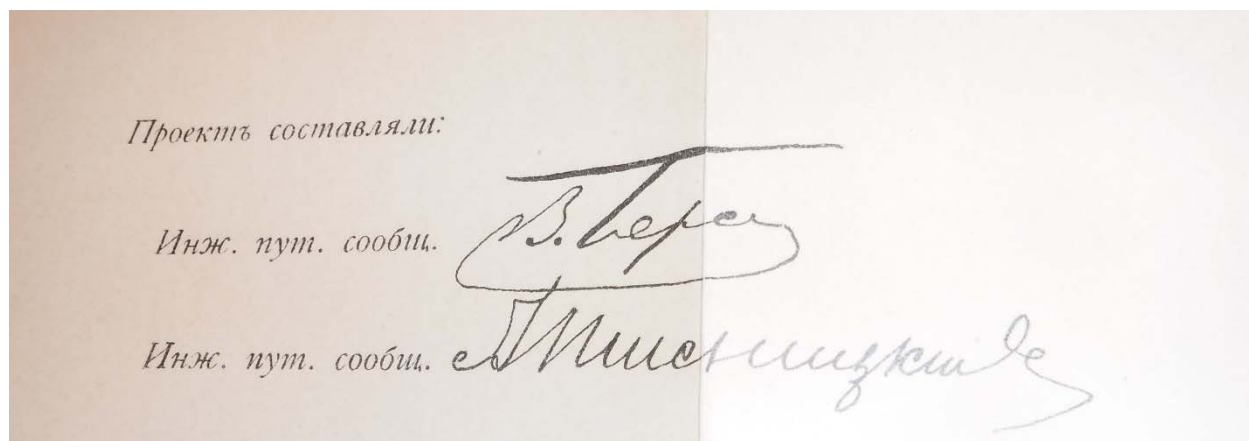 Проектъ составляли:
Инж. пут. сообщ. В. Берс
Инж. пут. сообщ. А Пшеницкій